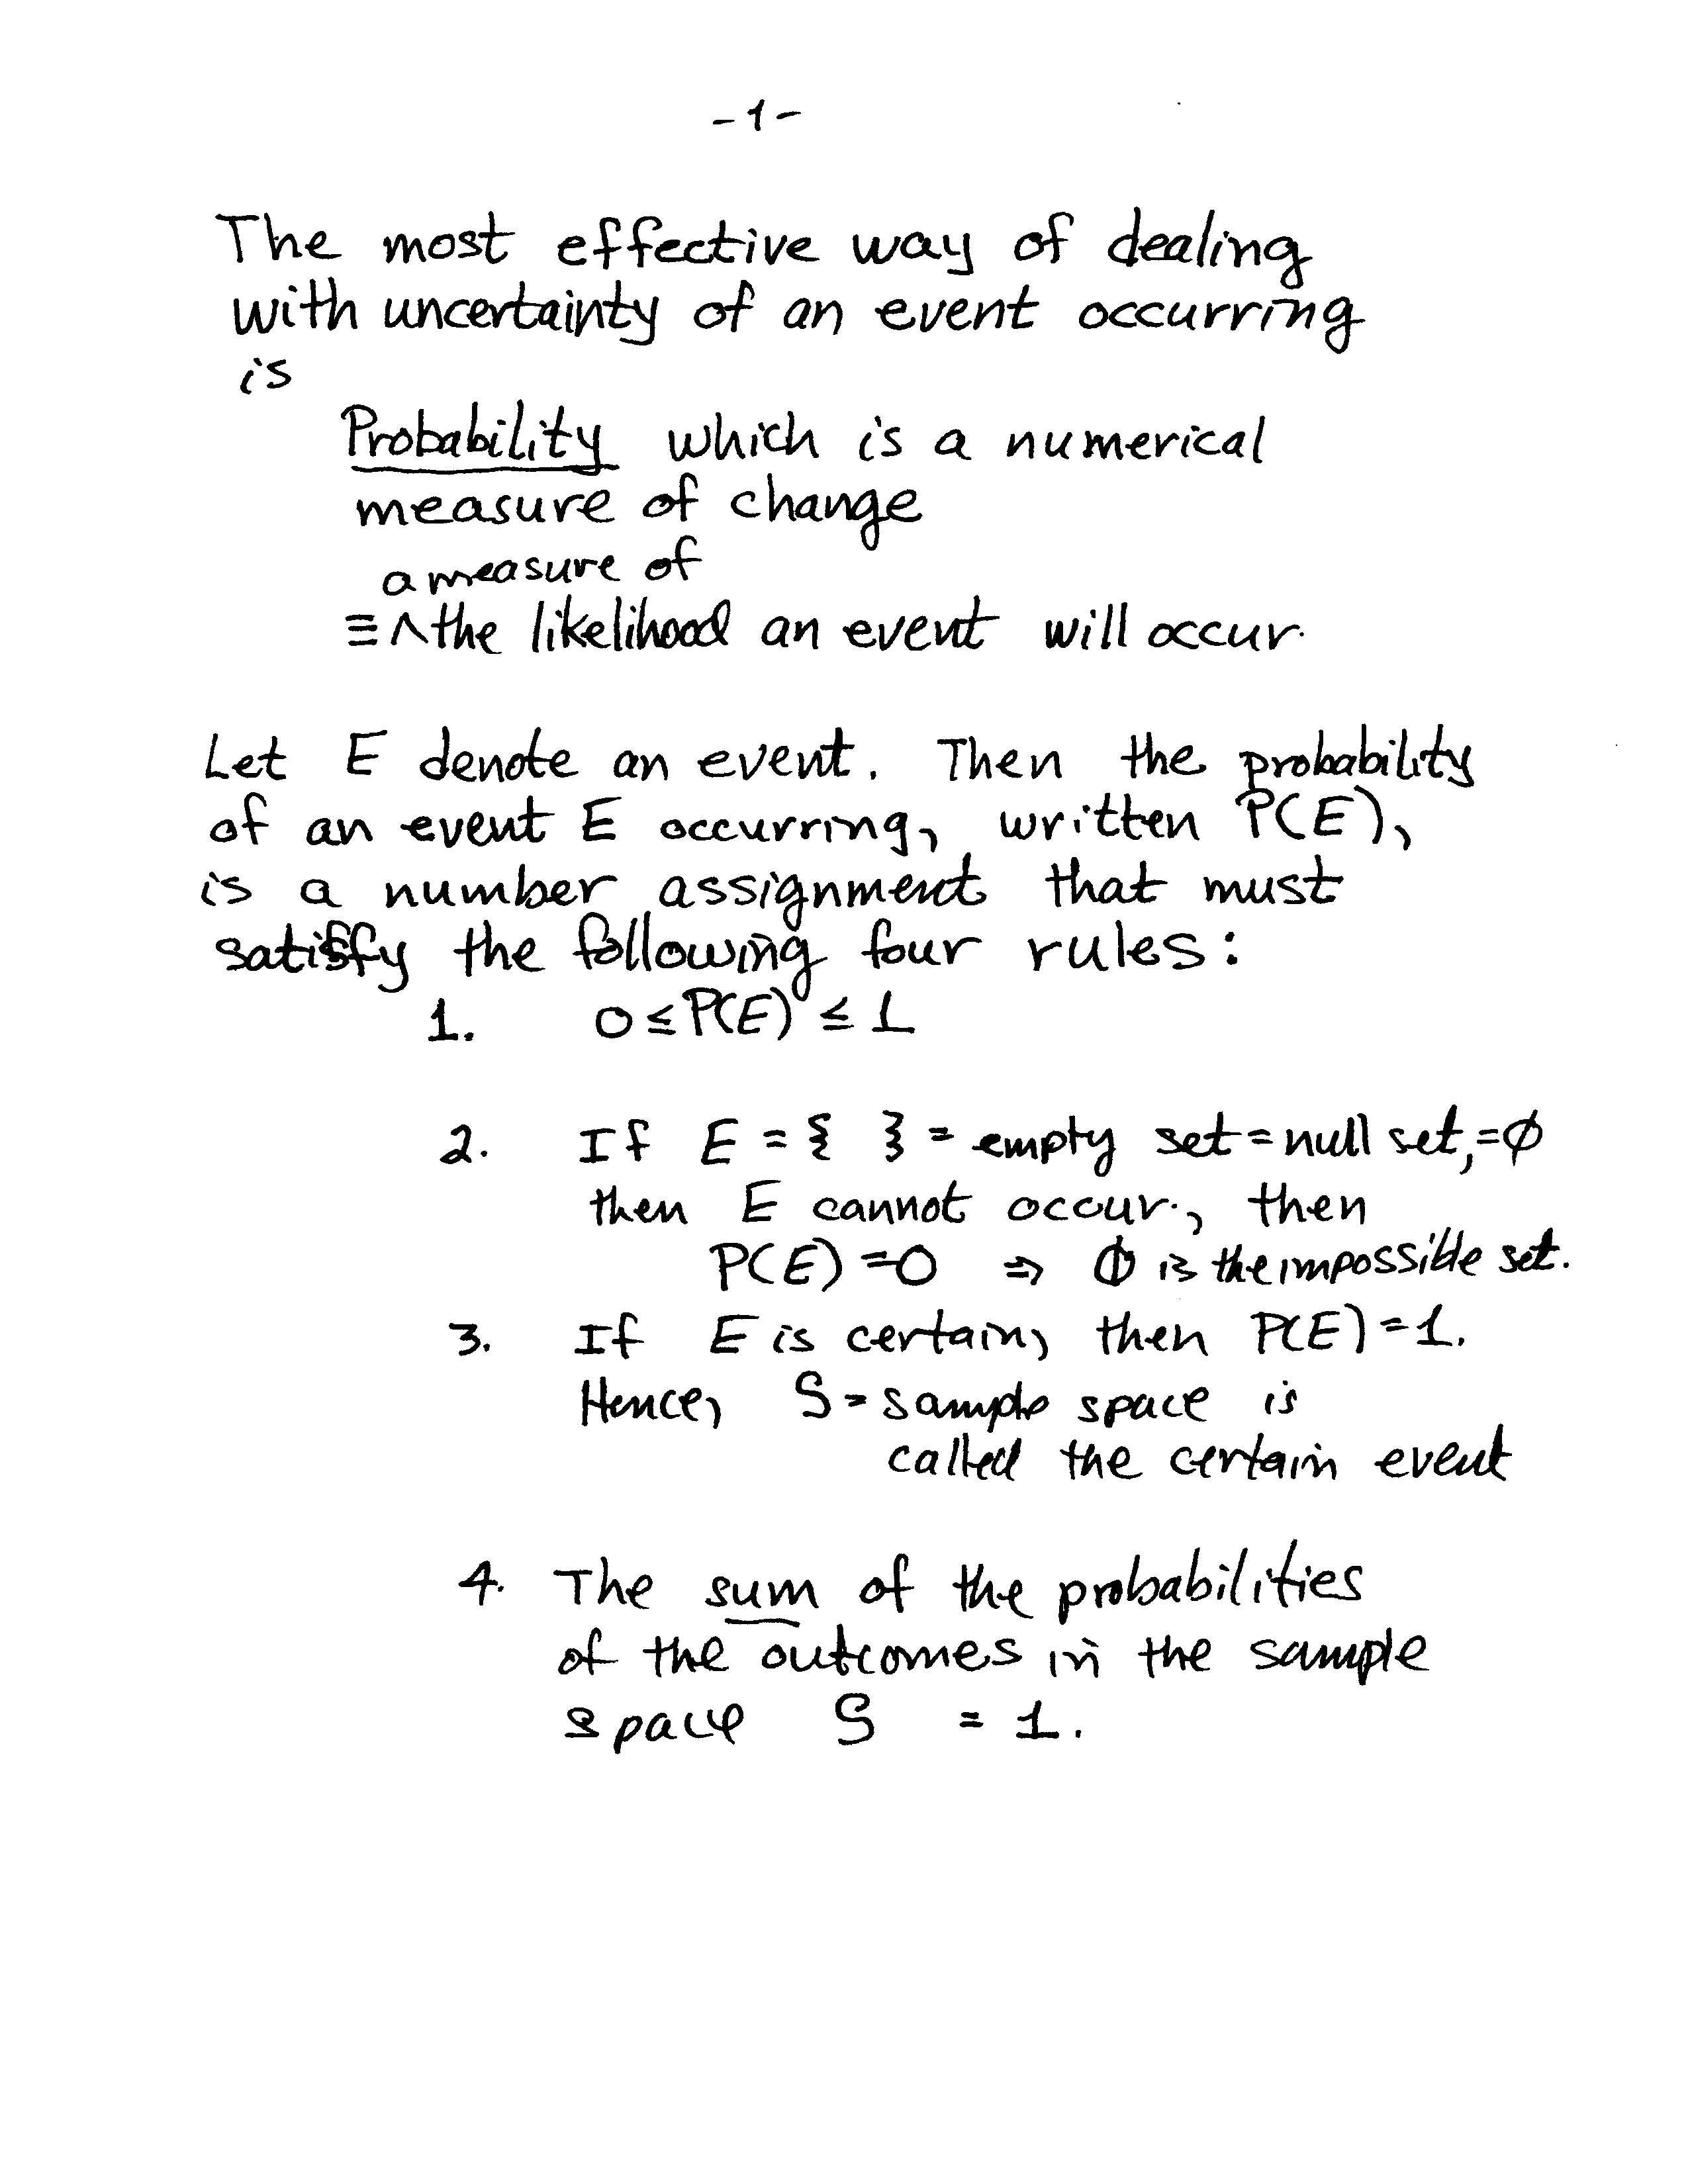 -1-
The most effective way of dealing
with uncertainty of an event occurring
is
Probability which is a numerical
measure of change
a measure of
≡ ^ the likelihood an event will occur.
Let E denote an event. Then the probability
of an event E occurring, written P(E),
is a number assignment that must
satisfy the following four rules:
1. 0 ≤ P(E) ≤ 1
2. If E = { } = empty set = null set, = ∅
then E cannot occur., then
P(E) = 0 ⇒ ∅ is the impossible set.
3. If E is certain, then P(E) = 1.
Hence, S = sample space is
called the certain event
4. The sum of the probabilities
of the outcomes in the sample
space S = 1.